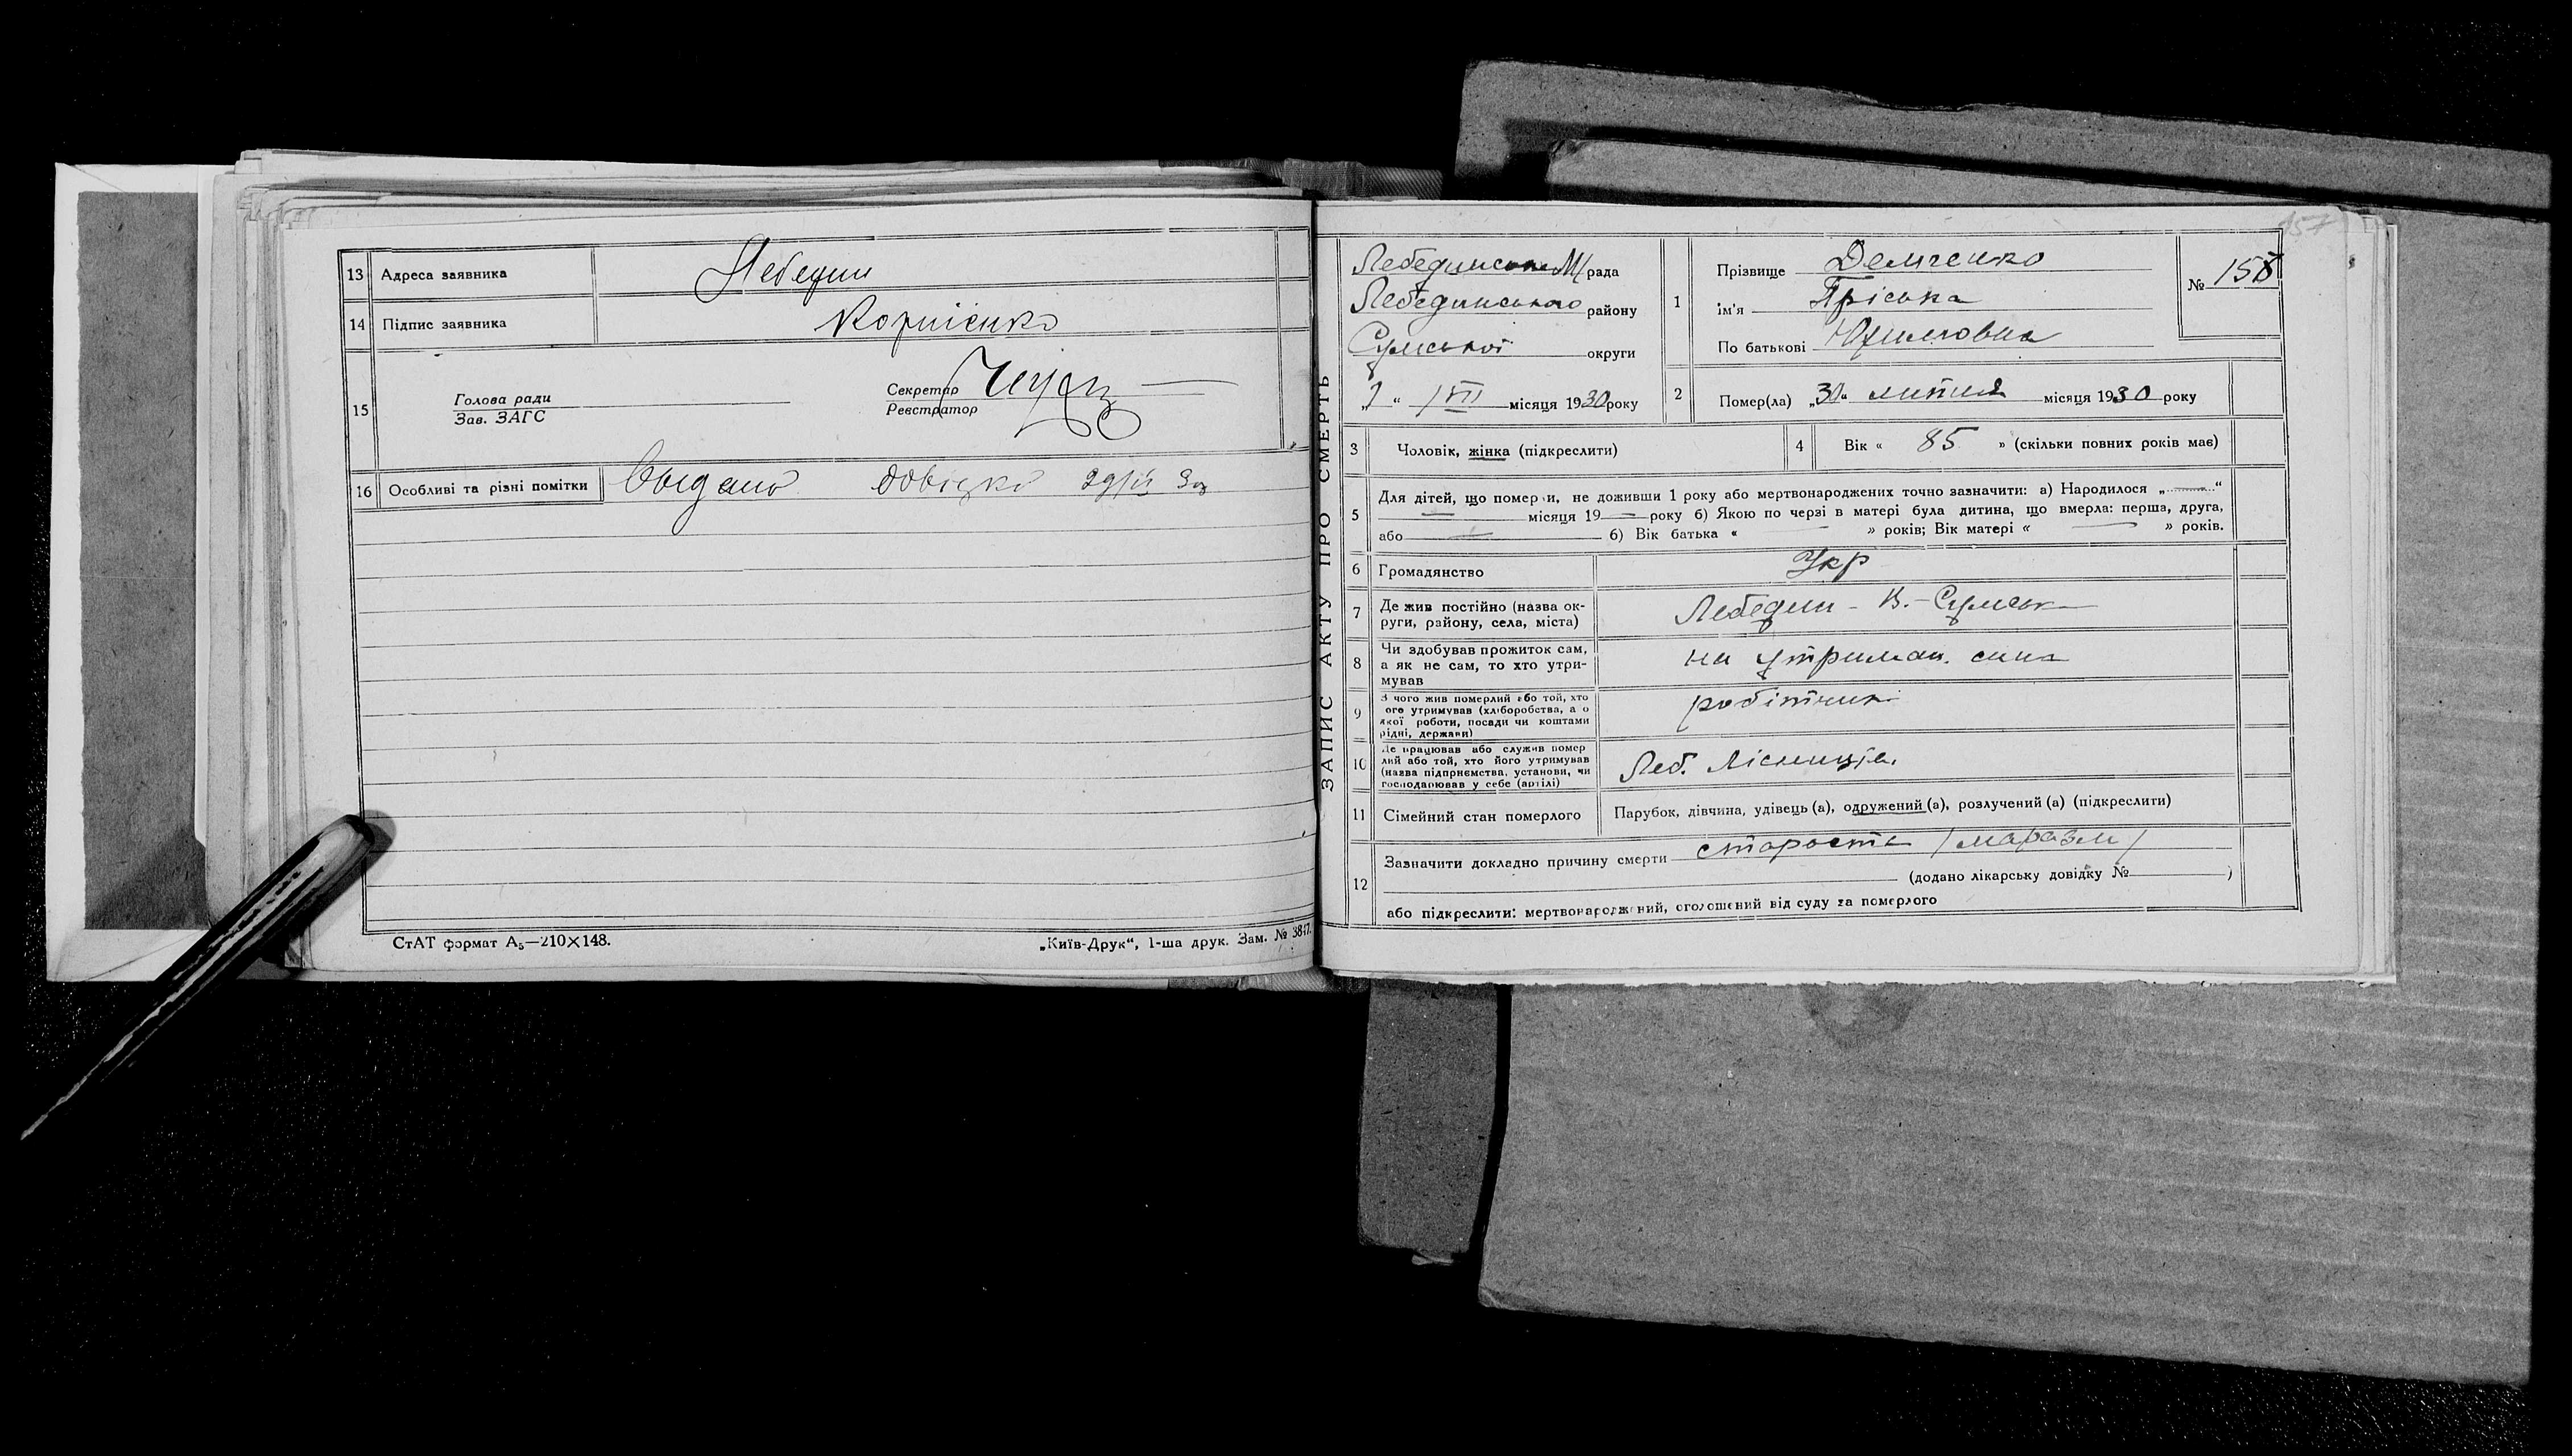 13 Адреса заявника Лебедин
14 Підпис заявника Корнієнко
15
Голова ради
Зав. ЗАГС
Секретар
Реєстратор
16 Особливі та різні помітки Выдано довідко 29/IX 30
СтАТ формат А₅—210×148.
„Київ-Друк“, 1-ша друк. Зам. № 3847.
ЗАПИС АКТУ ПРО СМЕРТЬ
157
Лебединська М/рада
Лебединського району
Сумської округи
місяця 1930 року
1 Прізвище Демченко
ім'я Пріська
По батькові Юхимовна
№ 158
2 Помер(ла) „30“ липня місяця 1930 року
3 Чоловік, жінка (підкреслити)
4 Вік « 85 » (скільки повних років має)
5 Для дітей, що померли, не доживши 1 року або мертвонароджених точно зазначити: а) Народилося „—“
— місяця 19 — року б) Якою по черзі в матері була дитина, що вмерла: перша, друга,
або — б) Вік батька « — » років; Вік матері « — » років.
6 Громадянство Укр
7 Де жив постійно (назва ок-
руги, району, села, міста) Лебедин - В.-Сумськ
8 Чи здобував прожиток сам,
а як не сам, то хто утри-
мував на утриман. сина
9 З чого жив померлий або той, хто
ого утримував (хліборобства, а о
якої роботи, посади чи коштами
рідні, держави) робітник
10 Де працював або служив помер
лий або той, хто його утримував
(назва підприємства, установи, чи
господарював у себе (артілі) Леб. Лісниція
11 Сімейний стан померлого Парубок, дівчина, удівець (а), одружений (а), розлучений (а) (підкреслити)
12 Зазначити докладно причину смерти старость /маразм/
(додано лікарську довідку № )
або підкреслити: мертвонароджений, оголошений від суду за померлого